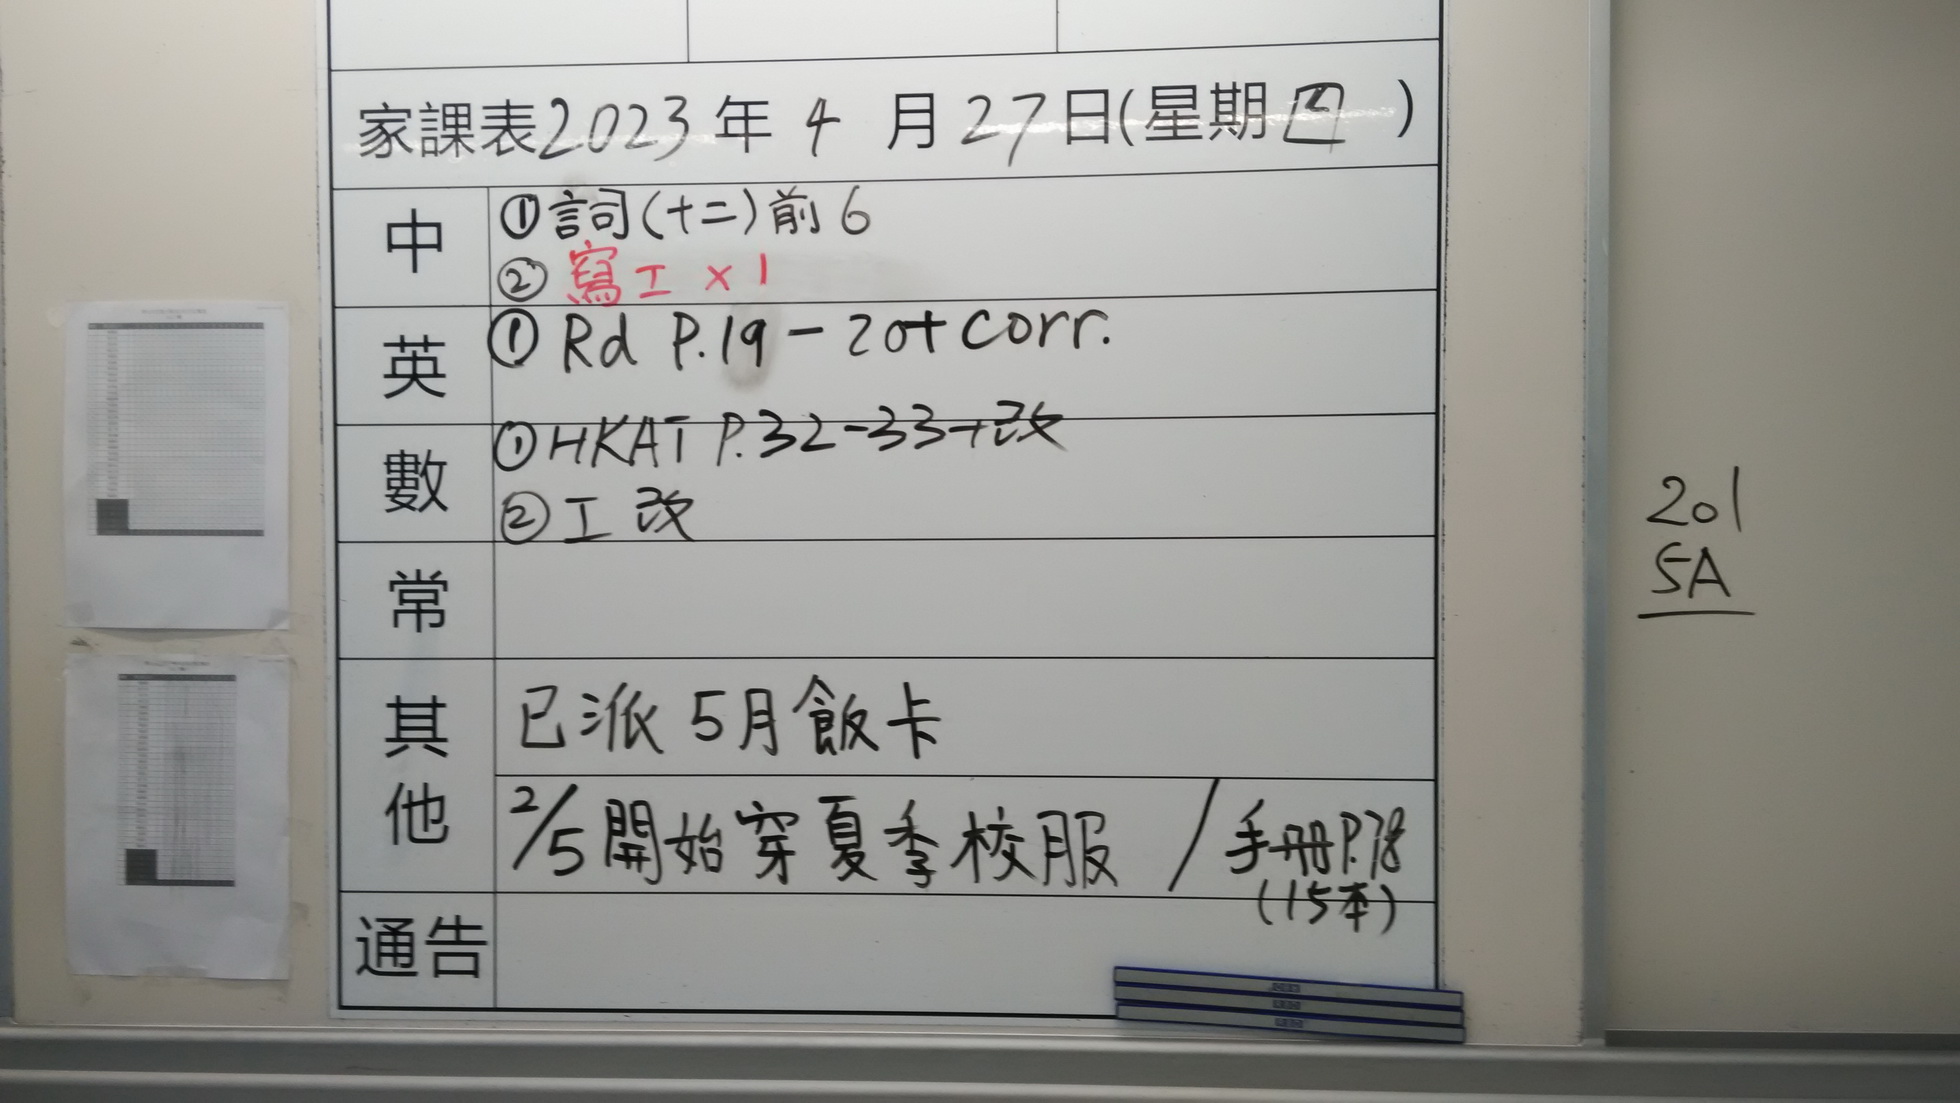 家課表2023年4月27日(星期四)
中
①詞(十二)前6
②寫工×1
英
①Rd P.19-20+corr.
數
①HKAT P.32-33+改
②工改
常
其他
已派5月飯卡
2/5開始穿夏季校服 / 手冊P.78
(15本)
通告
201
5A